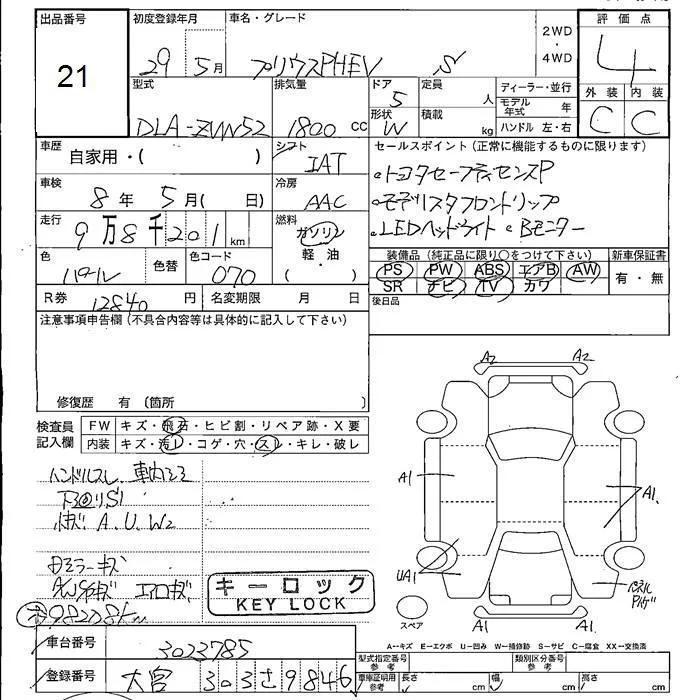 出品番号 初度登録年月 車名・グレード 2WD・4WD 評価点
21 29 5月 プリウスPHEV S 4
型式 排気量 ドア 定員 ディーラー・並行 外装 内装
DLA-ZVW52 1800 cc 5 人 モデル年式 年 C C
形状 W 積載 kg ハンドル 左・右
車歴 自家用・( ) シフト IAT セールスポイント(正常に機能するものに限ります)
車検 8年 5月( 日) 冷房 AAC トヨタセーフティセンスP
モデリスタフロントリップ
走行 9万8千201km 燃料 ガソリン・軽油 ( ) LEDヘッドライト Bモニター
色 パール 色替 色コード 070
装備品(純正品に限り○をつけて下さい) 新車保証書
PS PW ABS エアB AW 有・無
SR ナビ TV カワ
R券 12840円 名変期限 月 日 後日品
注意事項申告欄(不具合内容等は具体的に記入して下さい)
修復歴 有 〔箇所 〕
検査員記入欄 FW キズ・飛石・ヒビ割・リペア跡・X要
内装 キズ・汚レ・コゲ・穴・スレ・キレ・破レ
ハンドルスレ 車内ヨゴレ
下回リS1
A.U.W2
ドアミラーキズ
AWキズ エアロキズ
98208Km
キーロック
KEY LOCK
A2 A2
A1 A1
UA1 パネル
A1 A1
スペア
A-キズ E-エクボ U-凹み W-補修跡 S-サビ C-腐食 XX-交換済
車台番号 3023785
型式指定番号参考 類別区分番号参考
登録番号 大宮 303 さ 9846
車庫証明用参考 長さ cm 幅 cm 高さ cm